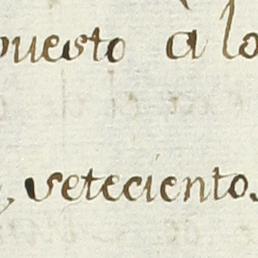 puesto à lo
, seteciento